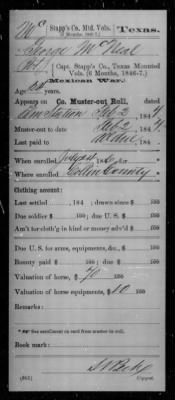 Mc | Stapp's Co., Mtd. Vols. | Texas.
(6 Months, 1846-7.)
George McNeal
Pvt., Capt. Stapp's Co., Texas Mounted
Vols. (6 Months, 1846-7.)
(Mexican War.)
Age years.
Appears on Co. Muster-out Roll, dated
Camp Feb 2, 1847.
Muster-out to date Feb 2, 1847.
Last paid to 184
When enrolled 1846.
Where enrolled Collin County
Clothing account:
Last settled , 184 ; drawn since $ 100
Due soldier $ 100; due U. S. $ 100
Am't for cloth'g in kind or money adv'd $ 100
Due U. S. for arms, equipments, &c., $ 100
Bounty paid $ 100; due $ 100
Valuation of horse, $ 70 100
Valuation of horse equipments, $ 10 100
Remarks:
Book mark:
(861) Copyist.